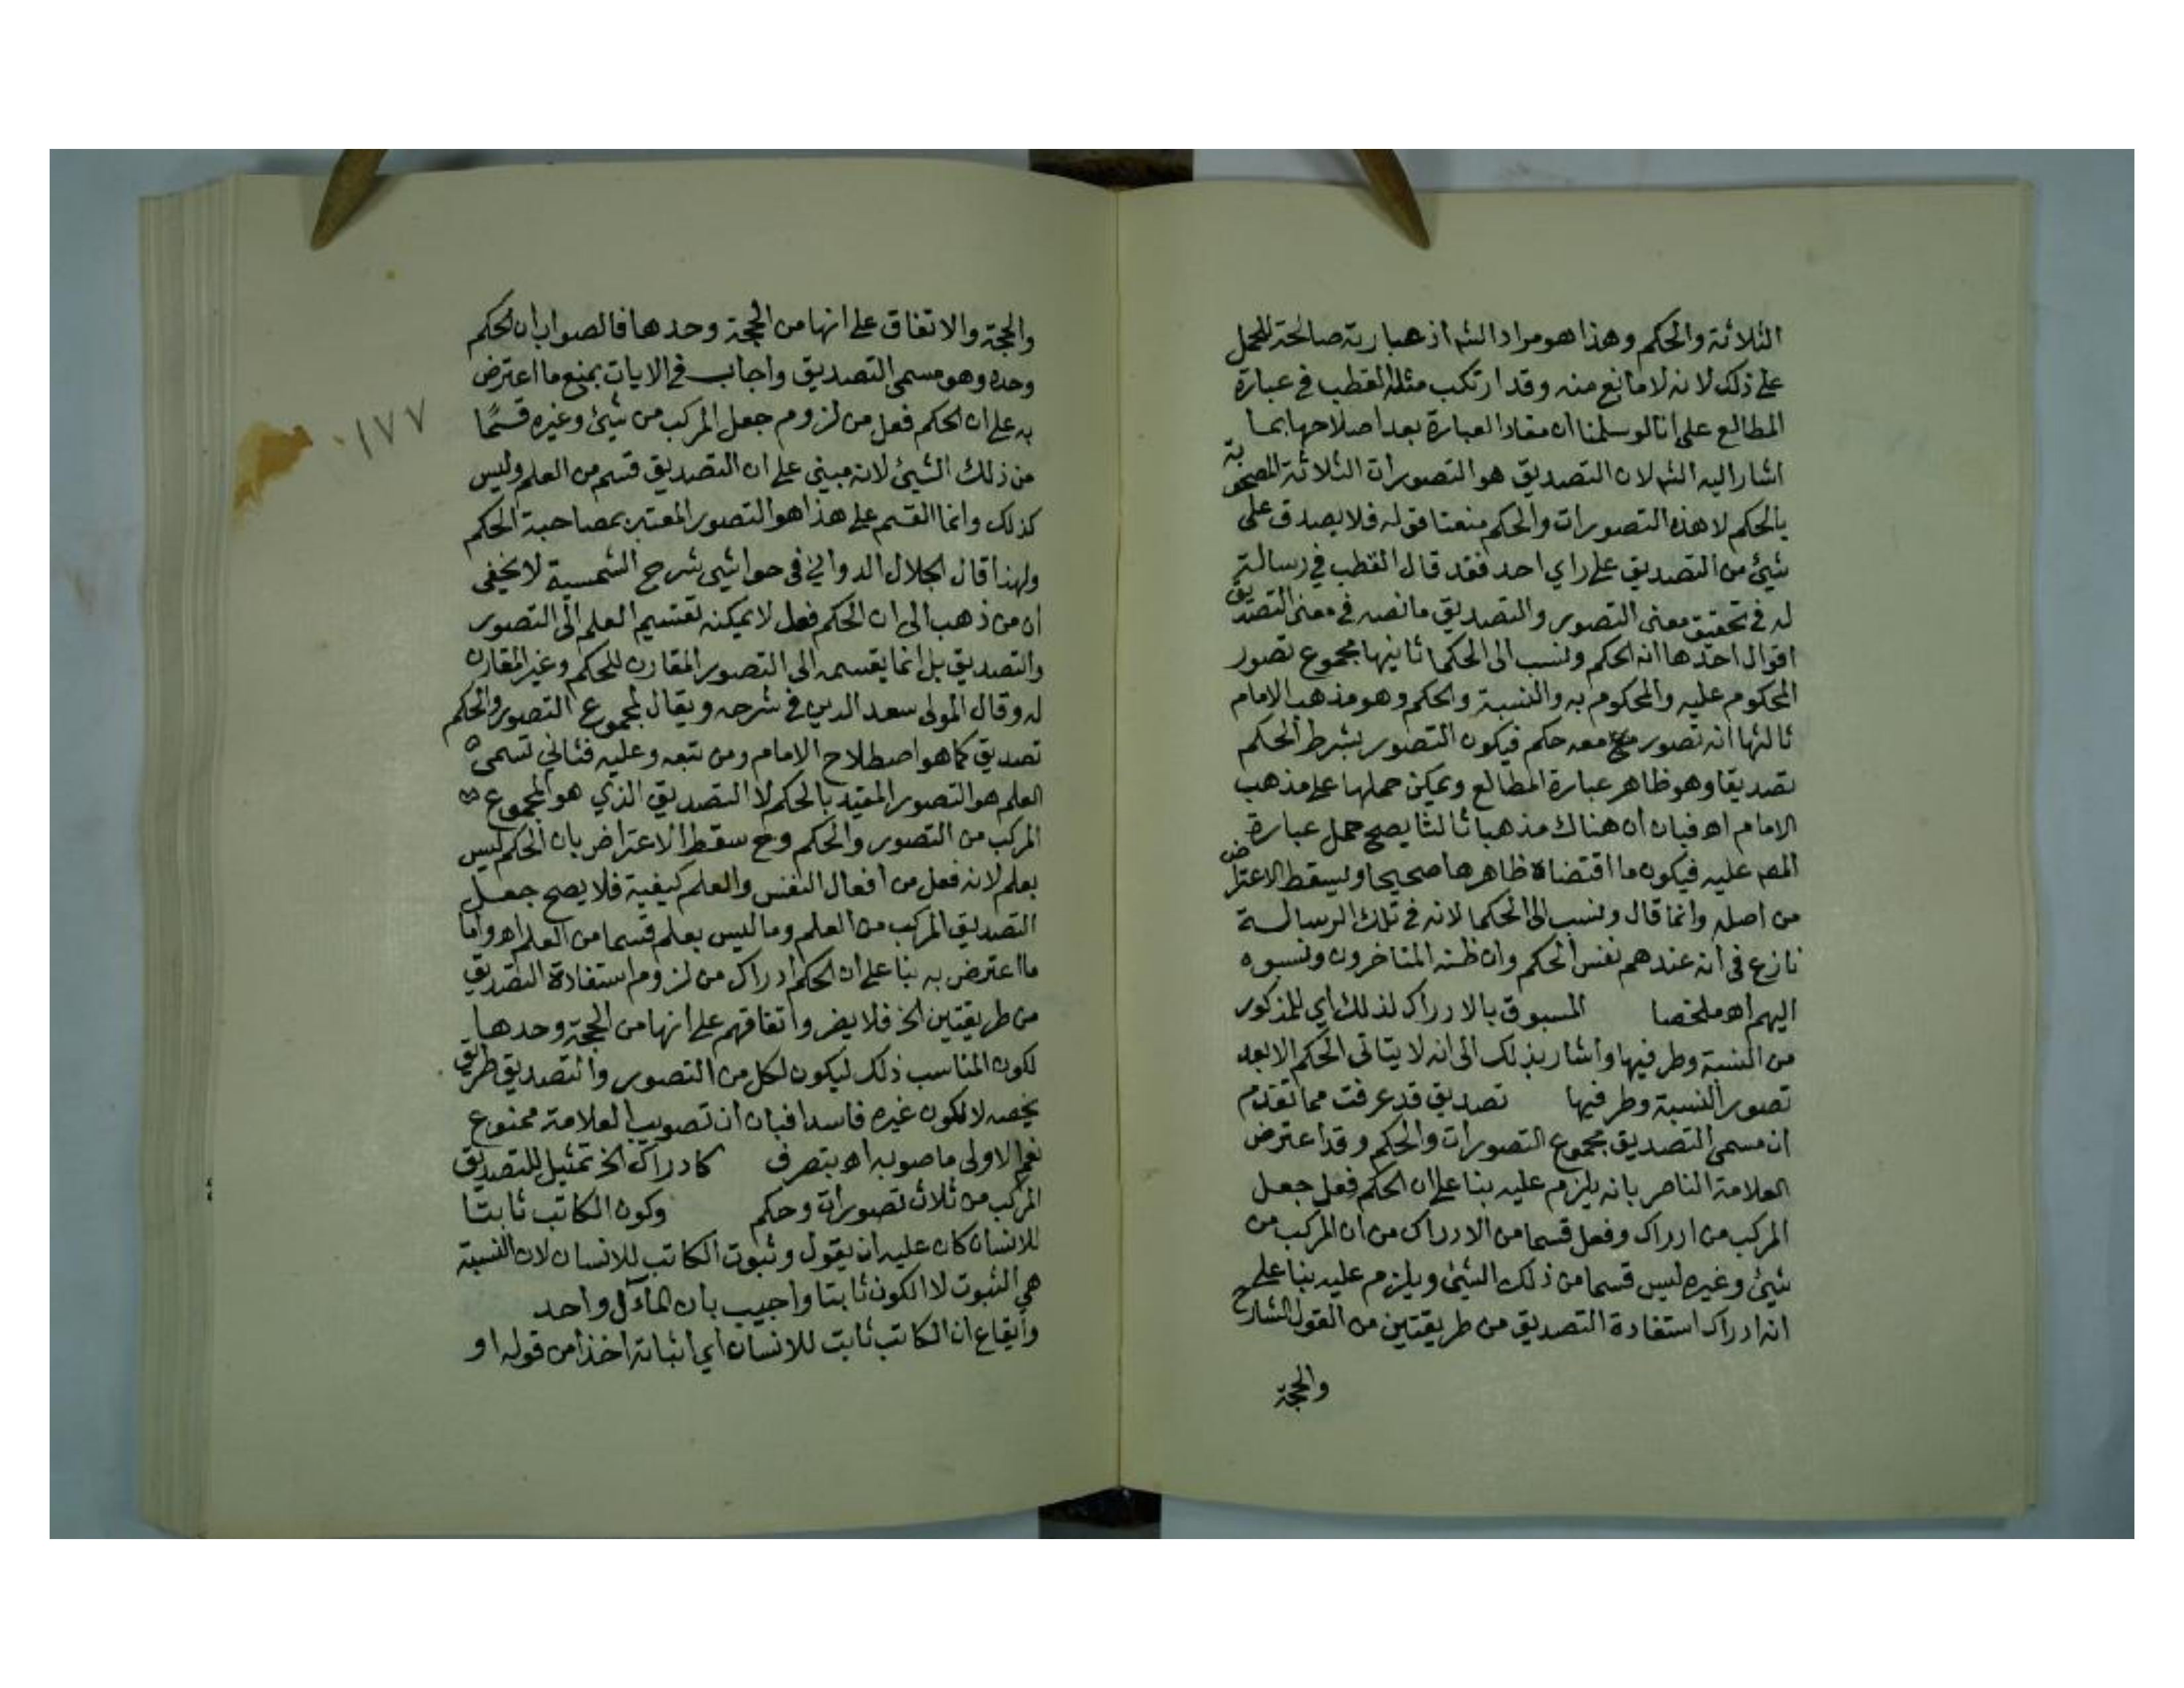 الثلاثة والحكم وهذا هو مراد الشم اذ عبارته صالحة للحمل
على ذلك لانه لا مانع منه وقد ارتكب مثله القطب في عبارة
المطالع على انا لو سلمنا ان مفاد العبارة بعد اصلاحها بما
اشار اليه الشم لان التصديق هو التصورات الثلاثة المصحوبة
بالحكم لا هذه التصورات والحكم منعنا قوله فلا يصدق على
شيئ من التصديق على راي احد فقد قال القطب في رسالة
له في تحقيق معنى التصور والتصديق ما نصه في معنى التصديق
اقوال احدها انه الحكم ونسب الى الحكما ثانيها مجموع تصور
المحكوم عليه والمحكوم به والنسبة والحكم وهو مذهب الامام
ثالثها انه تصور معه حكم فيكون التصور بشرط الحكم
تصديقا وهو ظاهر عبارة المطالع ويمكن حملها على مذهب
الامام اه فبان ان هناك مذهبا ثالثا يصح حمل عبارة
المص عليه فيكون ما اقتضاه ظاهرها صحيحا ويسقط الاعتراض
من اصله وانما قال ونسب الى الحكما لانه في تلك الرسالة
نازع في انه عندهم نفس الحكم وان ظنه المتاخرون ونسبوه
اليهم اه ملخصا المسبوق بالادراك لذلك اي للمذكور
من النسبة وطرفيها واشار بذلك الى انه لا يتاتى الحكم الا بعد
تصور النسبة وطرفيها تصديق قد عرفت مما تقدم
ان مسمى التصديق مجموع التصورات والحكم وقد اعترض
العلامة الناصر بانه يلزم عليه بنا على ان الحكم فعل جعل
المركب من ادراك وفعل قسما من الادراك من ان المركب من
شيئ وغيره ليس قسما من ذلك الشيئ ويلزم عليه بنا على
انه ادراك استفادة التصديق من طريقتين من القول الشارح
والحجة
والحجة والاتفاق على انها من الحجة وحدها فالصواب ان الحكم
وحده وهو مسمى التصديق واجاب في الايات بمنع ما اعترض
به على ان الحكم فعل من لزوم جعل المركب من شيئ وغيره قسمًا
من ذلك الشيئ لانه مبني على ان التصديق قسم من العلم وليس
كذلك وانما القسم على هذا هو التصور المعتبر بمصاحبة الحكم
ولهذا قال الجلال الدواني في حواشي شرح الشمسية لا يخفى
ان من ذهب الى ان الحكم فعل لا يمكنه تقسيم العلم الى التصور
والتصديق بل انما يقسمه الى التصور المقارن للحكم وغير المقارن
له وقال المولى سعد الدين في شرحه ويقال لمجموع التصور والحكم
تصديق كما هو اصطلاح الامام ومن تبعه وعليه فثاني قسمى
العلم هو التصور المقيد بالحكم لا التصديق الذي هو المجموع
المركب من التصور والحكم وح سقط الاعتراض بان الحكم ليس
بعلم لانه فعل من افعال النفس والعلم كيفية فلا يصح جعل
التصديق المركب من العلم وما ليس بعلم قسما من العلم اه واما
ما اعترض به بنا على ان الحكم ادراك من لزوم استفادة التصديق
من طريقتين الخ فلا يضر واتفاقهم على انها من الحجة وحدها
لكون المناسب ذلك ليكون لكل من التصور والتصديق طريق
يخصه لا لكون غيره فاسدا فبان ان تصويب العلامة ممنوع
نعم الاولى ما صوبه اه بتصرف كادراك الخ تمثيل للتصديق
المركب من ثلاث تصورات وحكم وكون الكاتب ثابتا
للانسان كان عليه ان يقول وثبوت الكاتب للانسان لان النسبة
هي الثبوت لا الكون ثابتا واجيب بان المآل واحد
وايقاع ان الكاتب ثابت للانسان اي اثباته اخذا من قوله او
١٧٧